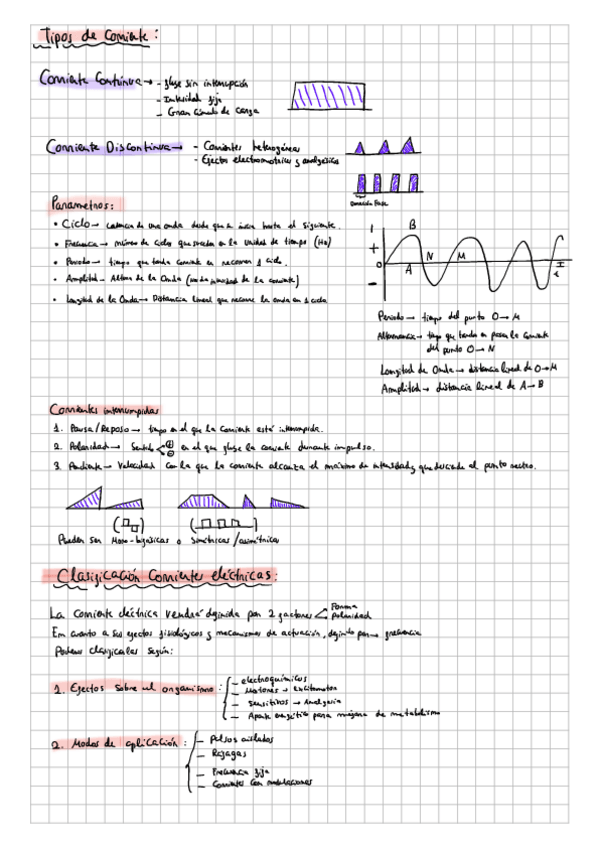 Tipos de Corriente:
Corriente Continua → - fluye sin interrupción
- Intensidad fija
- Gran cúmulo de carga
Corriente Discontinua → - Corrientes heterogéneas
- Efectos electromotrices y analgésicos
Duración Fase
Parametros:
• Ciclo → Cadencia de una onda desde que se inicia hasta el siguiente.
• Frecuencia → número de ciclo que pueden en la unidad de tiempo (Hz)
• Periodo → tiempo que tarda corriente en recorrer 1 ciclo.
• Amplitud → Altura de la Onda (intensidad de la corriente)
• Longitud de la Onda → Distancia lineal que recorre la onda en 1 ciclo
I
+
0
-
B
A
N
M
Periodo → tiempo del punto O → M
Alternancia → tiempo que tarda en pasar la corriente
del punto O → N
Longitud de Onda → distancia lineal de O → M
Amplitud → distancia lineal de A → B
Corrientes interrumpidas
1. Pausa/Reposo → tiempo en el que la corriente está interrumpida.
2. Polaridad → Sentido < + - en el que fluye la corriente durante impulso.
3. Pendiente → Velocidad con la que la corriente alcanza el máximo de intensidad y que desciende al punto neutro.
Pueden ser Mono-bifásicas o Simétricas/asimétricas
Clasificación Corrientes eléctricas:
La corriente eléctrica vendrá definida por 2 factores < Forma
Polaridad
En cuanto a sus efectos fisiológicos y mecanismos de actuación, definito por → frecuencia
Podemos clasificarlas según:
1. Efectos sobre el organismo:
- electroquímicos
- Motores → Excitomotor
- Sensitivos → Analgesia
- Aporte energético para mejora de metabolismo
2. Modos de aplicación:
- Pulsos aislados
- Ráfagas
- Frecuencia fija
- Corrientes con modulaciones